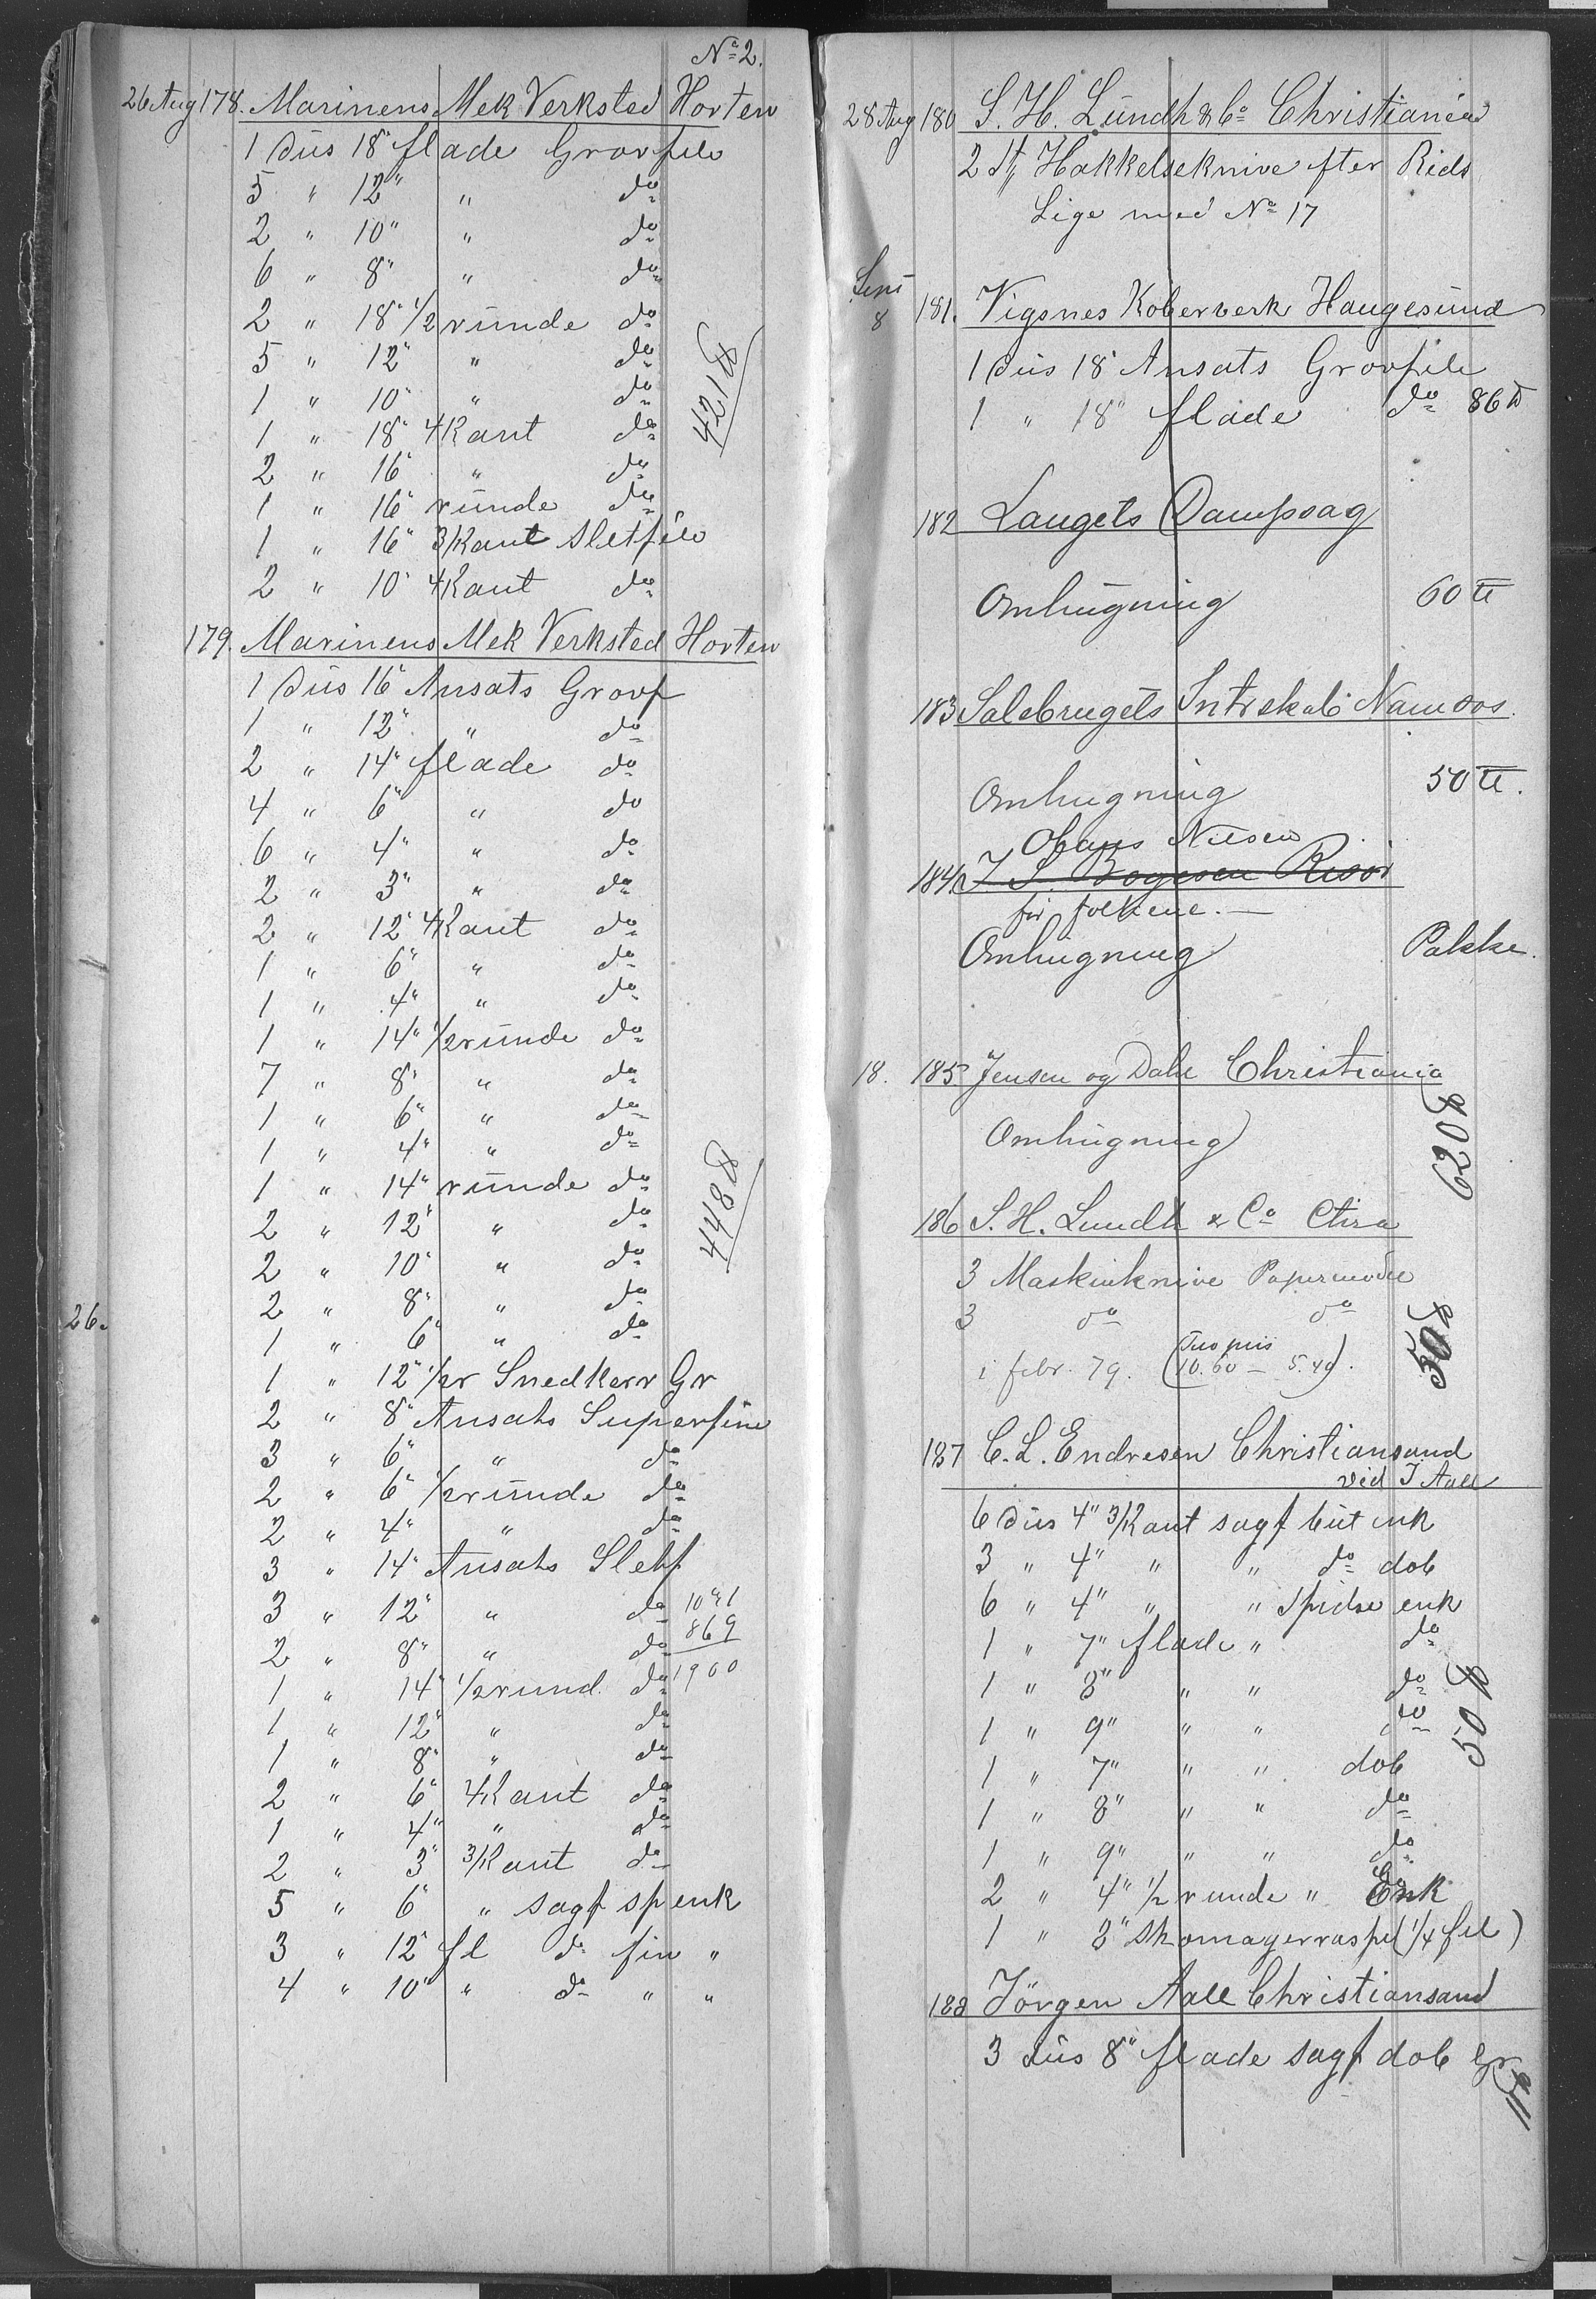 No 2.
26 Aug 178. Marinens Mek Verksted Horten
1 Düs 18" flade Grovfile
5 " 12" " do
2 " 10" " do
6 " 8" " do
2 " 18" 1/2 ründe do
5 " 12" " do
1 " 10" " do
421 ℔
1 " 18" 4Kant do
2 " 16" " do
1 " 16" ründe do
1 " 16" 3/Kant Sletfile
2 " 10" 4Kant do
179. Marinens Mek Verksted Horten
1 Düs 16" Ansats Grovf
1 " 12" " do
2 " 14" flade do
4 " 6" " do
6 " 4" " do
2 " 3" " do
2 " 12" 4Kant do
1 " 6" " do
1 " 4" " do
1 " 14" 1/2 ründe do
7 " 8" " do
1 " 6" " do
1 " 4" " do
1 " 14" ründe do
448 ℔
2 " 12" " do
2 " 10" " do
2 " 8" " do
26.
1 " 6" " do
1 " 12" 1/2r Snedkerr Gr
2 " 8" Ansats Superfine
3 " 6" " do
2 " 6" 1/2 ründe do
2 " 4" " do
3 " 14" Ansats Sletf
3 " 12" " do 10
2 " 8" " do 869
1 " 14" 1/2 rund. do 1900
1 " 12" " do
1 " 8" " do
2 " 6" 4Kant do
1 " 4" " do
2 " 3" 3/Kant do
5 " 6" " sagf sp enk
3 " 12" fl do fin "
4 " 10" " do " "
28 Aug 180 S. H. Lündh & Co Christiania
2 St Hakkelseknive efter Rids
Lige med No 17
8 181. Vigsnes Koberverk Haugesünd
1 Düs 18" Ansats Grovfile
1 " 18" flade do 86 ℔
182 Langets Dampsag
Omhügning 60 ℔
183 Salsbrugets Intrskab Namsos.
Omhugning 50 ℔.
Nilsen
184 J S. Risör
for folkene.
Omhügning Pakke.
18. 185 Jensen og Dahl Christiania
Omhügning
620 ℔
186 S. H. Lundh & Co Chra
3 Maskinknive
3 do do
i febr. 79. (10.60 — 5.40).
50 ℔
187 C. L. Endresen Christiansand
vid J Aall
6 Düs 4" 3/Kant sagf büt enk
3 " 4" " " do dob
6 " 4" " " Spidse enk
1 " 7" flade " do
1 " 8" " " do
1 " 9" " " do
50 ℔
1 " 7" " " dob
1 " 8" " " do
1 " 9" " " do
2 " 4" 1/2 runde " Enk
1 " 8" Skomagerraspe (1/4 fil)
188 Jörgen Aall Christiansand
3 Düs 8" flade sagf dob Gr